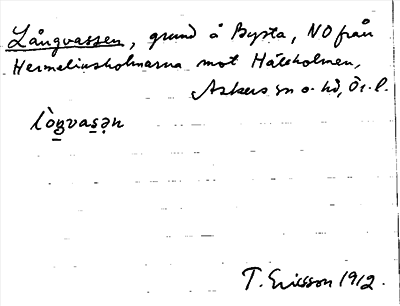 Långvassen, grund å Bysta, NO från
Hermelinsholmarna mot Hätsholmen,
Askers sn o. hd, Ör. l.
lòŋvasən
T. Ericsson 1912.